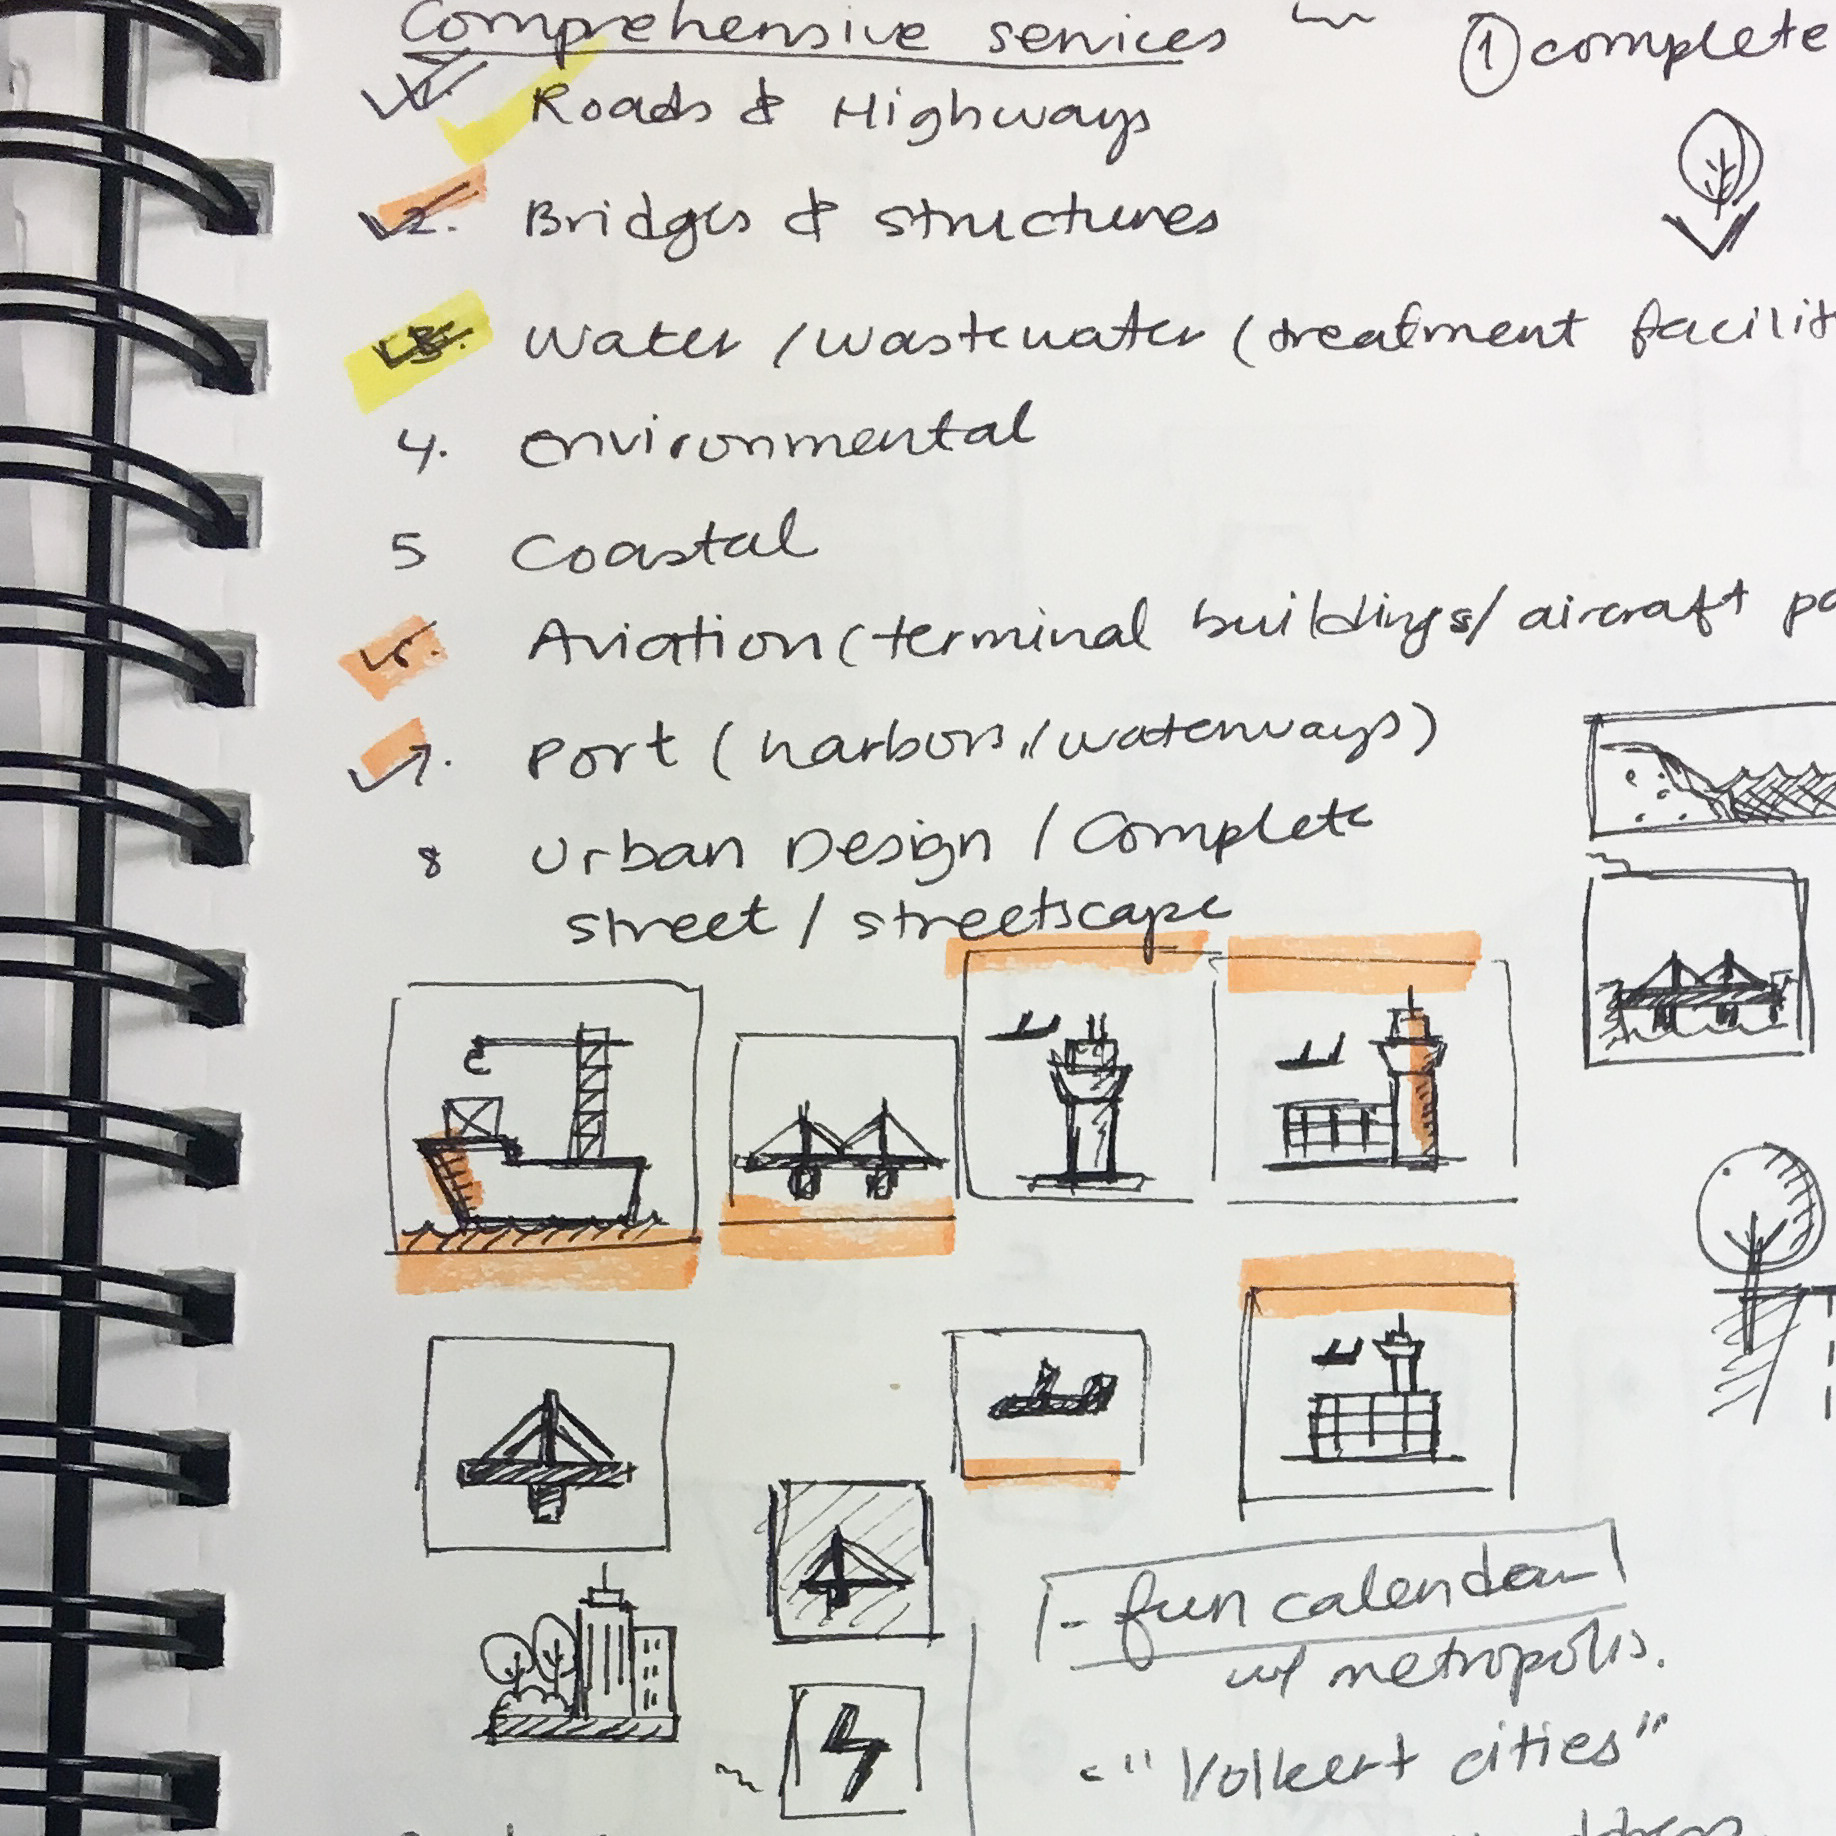 Comprehensive services
① complete
1. Roads & Highways
2. Bridges & structures
3. Water / wastewater (treatment facilit
4. environmental
5 Coastal
6. Aviation (terminal buildings / aircraft pa
7. Port (harbors / waterways)
8 Urban Design / Complete
street / streetscape
- fun calendar
w/ metropolis.
- "Volkert cities"